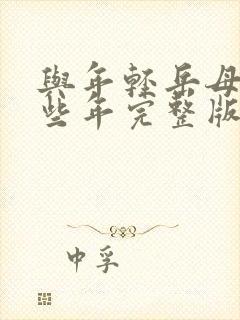 與年輕岳母
些年完整版
中孚